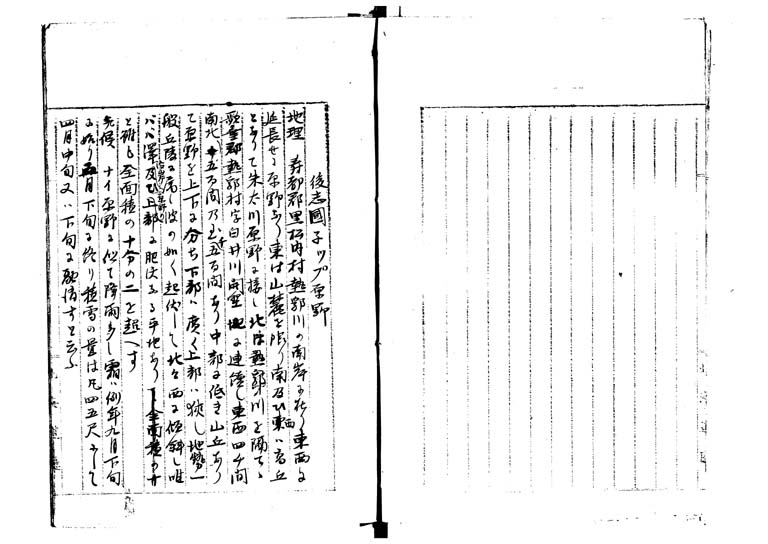 後志國子ツプ原野
地理 壽都郡黒松内村熱郛川の南岸に在り東西に
延長せる原野なり東は山麓を限り南及び西は高丘
となりて朱太川原野に接し北は熱郛川を隔てゝ
歌棄郡熱郛村字白井川開墾地に連續し東西四千間
南北五百間乃至千五百間あり中部に低き山丘あり
て原野を上下に分ち下部は廣く上部は狹し地勢一
般丘陵に属し波の如く起伏して北々西に傾斜し唯
沿岸及び上部に肥沃なる平地あり
と雖も全面積の十分の二を超へす
氣候 ナイ原野に似て降雨多し霜は例年九月下旬
に始り五月下旬に終り積雪の量は凡四五尺にして
四月中旬又は下旬に融消すと云ふ